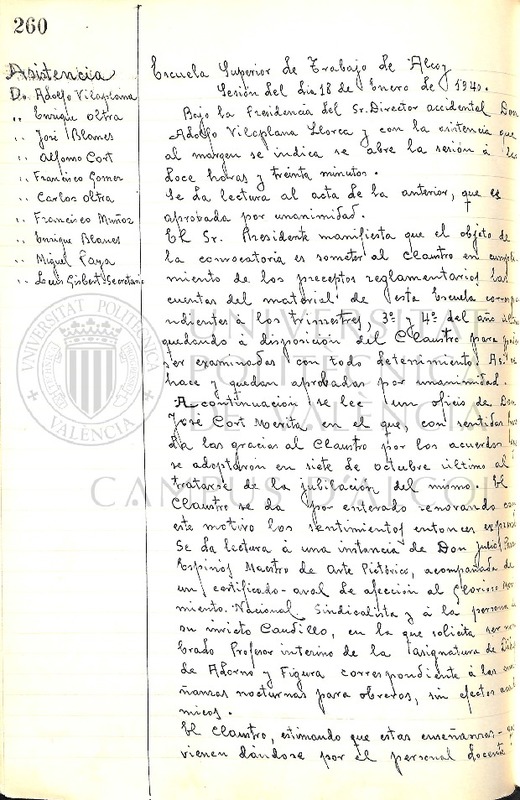 260
Asistencia
D. Adolfo Vilaplana
,, Enrique Oltra
,, José Blanes
,, Alfonso Cort
,, Francisco Gomez
,, Carlos Oltra
,, Francisco Muñoz
,, Enrique Blanes
,, Miguel Paya
,, Luis Gisbert-Secretario
Escuela Superior de Trabajo de Alcoy
Sesión del dia 18 de Enero de 1940.
Bajo la Presidencia del Sr. Director accidental Don
Adolfo Vilaplana Llorca y con la asistencia que
al margen se indica se abre la sesión á las
doce horas y treinta minutos.
Se da lectura al acta de la anterior, que es
aprobada por unanimidad.
El Sr. Presidente manifiesta que el objeto de
la convocatoria es someter al Claustro en cumpli-
miento de los preceptos reglamentarios las
cuentas del material de esta Escuela corresp
ndientes á los trimestres, 3º y 4º del año
quedando á disposición del Claustro para
ser examinadas con todo detenimiento. Asi se
hace y quedan aprobadas por unanimidad.
A continuación se lee un oficio de Don
José Cort Merita en el que, con sentidas
da las gracias al Claustro por los acuerdos
se adoptaron en siete de octubre último al
tratarse de la jubilación del mismo. El
Claustro se da por enterado renovando con
este motivo los sentimientos entonces
Se da lectura á una instancia de Don Julio
Espinós Maestro de Arte Pictórico, acompañada de
un certificado-aval de afección al Glorioso
miento Nacional Sindicalista y á la persona
su invicto Caudillo, en la que solicita ser
brado Profesor interino de la asignatura de
de Adorno y Figura correspondiente á las
ñanzas nocturnas para obreros, sin efectos
micos.
El Claustro, estimando que estas enseñanzas
vienen dándose por el personal docente
UNIVERSITAT POLITÈCNICA
DE VALÈNCIA
UNIVERSITAT
POLITÈCNICA
DE VALÈNCIA
CAMPUS D'ALCOI